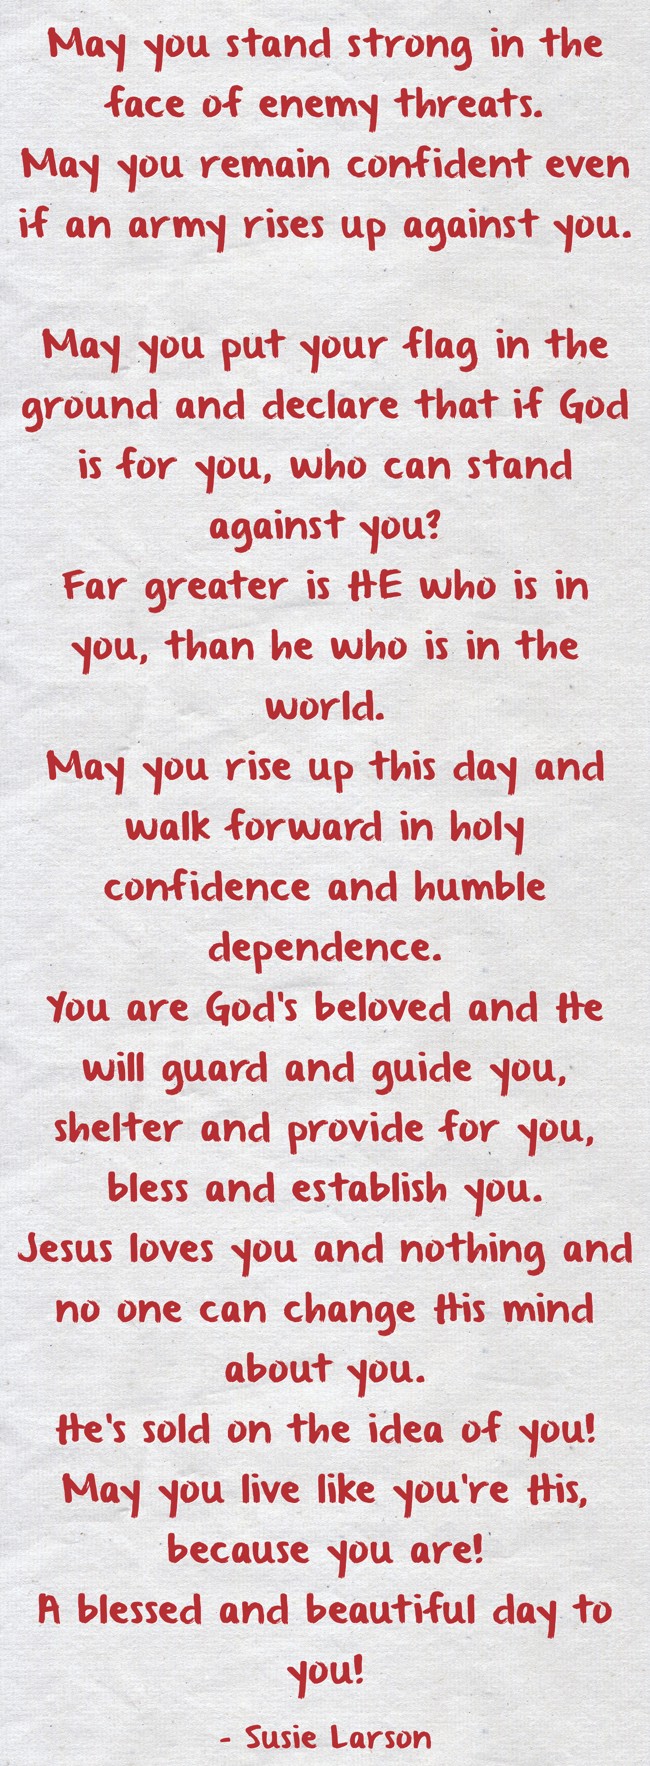 May you stand strong in the
face of enemy threats.
May you remain confident even
if an army rises up against you.
May you put your flag in the
ground and declare that if God
is for you, who can stand
against you?
Far greater is HE who is in
you, than he who is in the
world.
May you rise up this day and
walk forward in holy
confidence and humble
dependence.
You are God's beloved and He
will guard and guide you,
shelter and provide for you,
bless and establish you.
Jesus loves you and nothing and
no one can change His mind
about you.
He's sold on the idea of you!
May you live like you're His,
because you are!
A blessed and beautiful day to
you!
- Susie Larson